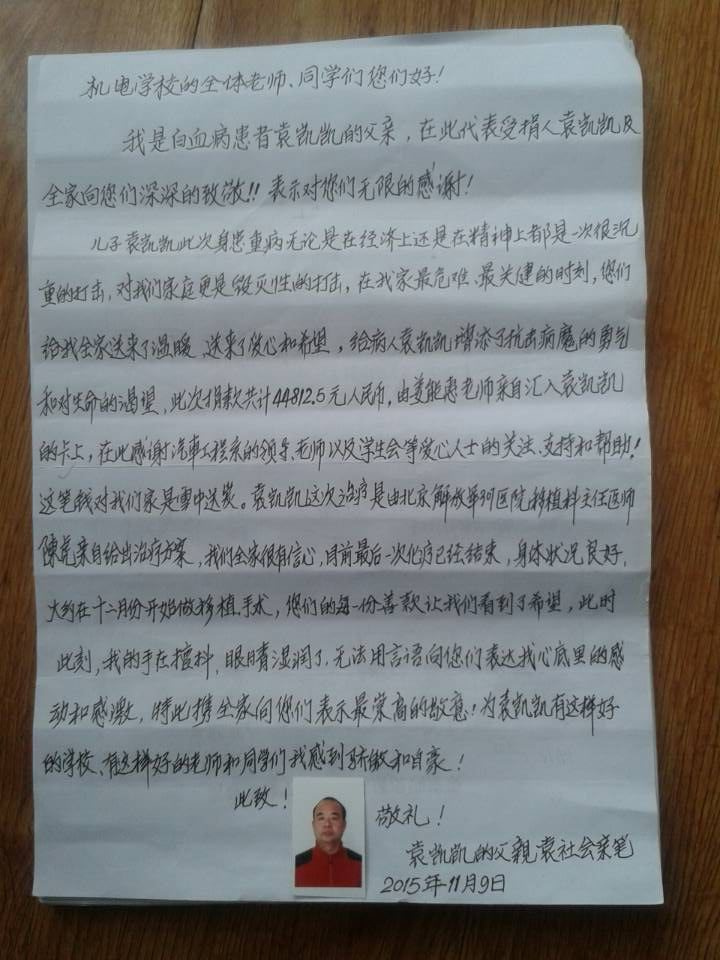 机电学校的全体老师、同学们您们好！
我是白血病患者袁凯凯的父亲，在此代表受捐人袁凯凯及
全家向您们深深的致敬!! 表示对您们无限的感谢！
儿子袁凯凯此次身患重病无论是在经济上还是在精神上都是一次很沉
重的打击，对我们家庭更是毁灭性的打击，在我家最危难、最关健的时刻，您们
给我全家送来了温暖 送来了爱心和希望，给病人袁凯凯增添了抗击病魔的勇气
和对生命的渴望，此次捐款共计44812.5元人民币，由姜能惠老师亲自汇入袁凯凯
的卡上，在此感谢汽車工程系的领导、老师以及学生会等爱心人士的关注、支持和帮助！
这笔钱对我们家是雪中送炭。袁凯凯这次治疗是由北京解放军307医院移植科主任医师
陳虎亲自给出治疗方案，我们全家很有信心，目前最后一次化疗已经结束，身体状况良好，
大约在十二月份开始做移植手术，您们的每一份善款让我们看到了希望，此时
此刻，我的手在擅抖，眼睛湿润了，无法用言语向您们表达我心底里的感
动和感激，特此携全家向您们表示最崇高的敬意！为袁凯凯有这样好
的学校、有这样好的老师和同学们我感到骄傲和自豪！
此致！
敬礼！
袁凯凯的父親袁社会亲笔
2015年11月9日